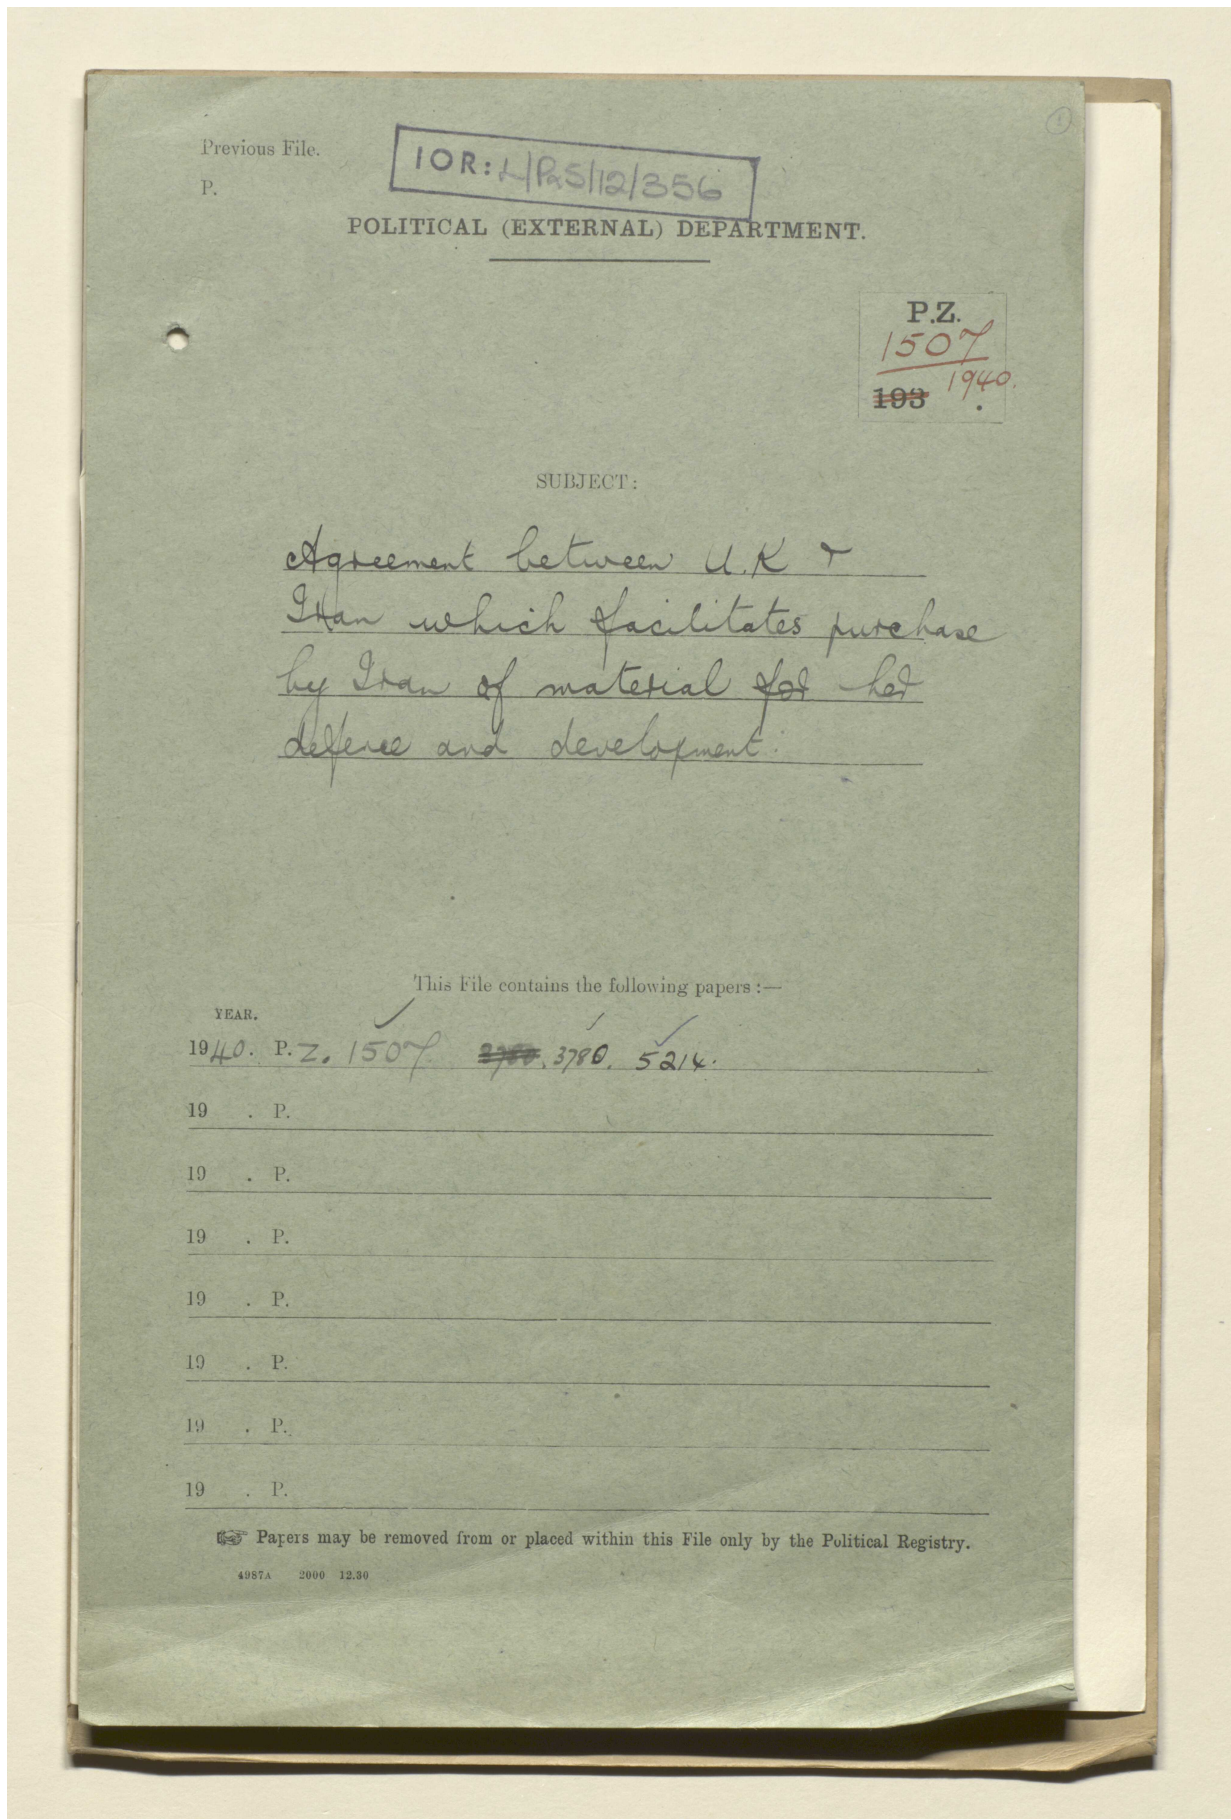 1
Previous File.
IOR: L/P&S/12/356
P.
POLITICAL (EXTERNAL) DEPARTMENT.
P.Z.
1507
1940.
193 .
SUBJECT:
Agreement between U.K &
Iran which facilitates purchase
by Iran of material for her
defence and development.
This File contains the following papers :—
YEAR.
1940. P.Z. 1507. 3780. 5214.
19 . P.
19 . P.
19 . P.
19 . P.
19 . P.
19 . P.
19 . P.
☞ Papers may be removed from or placed within this File only by the Political Registry.
4987A 2000 12.30